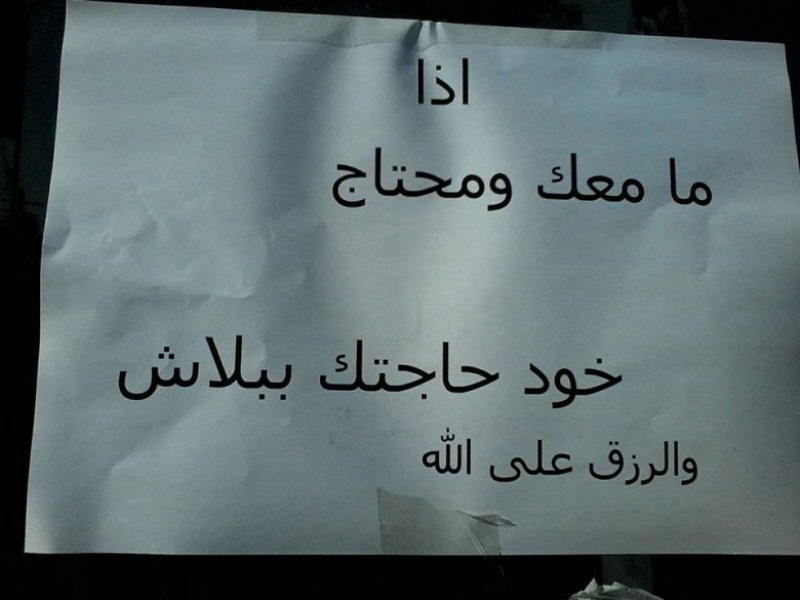 اذا
ما معك ومحتاج
خود حاجتك ببلاش
والرزق على الله